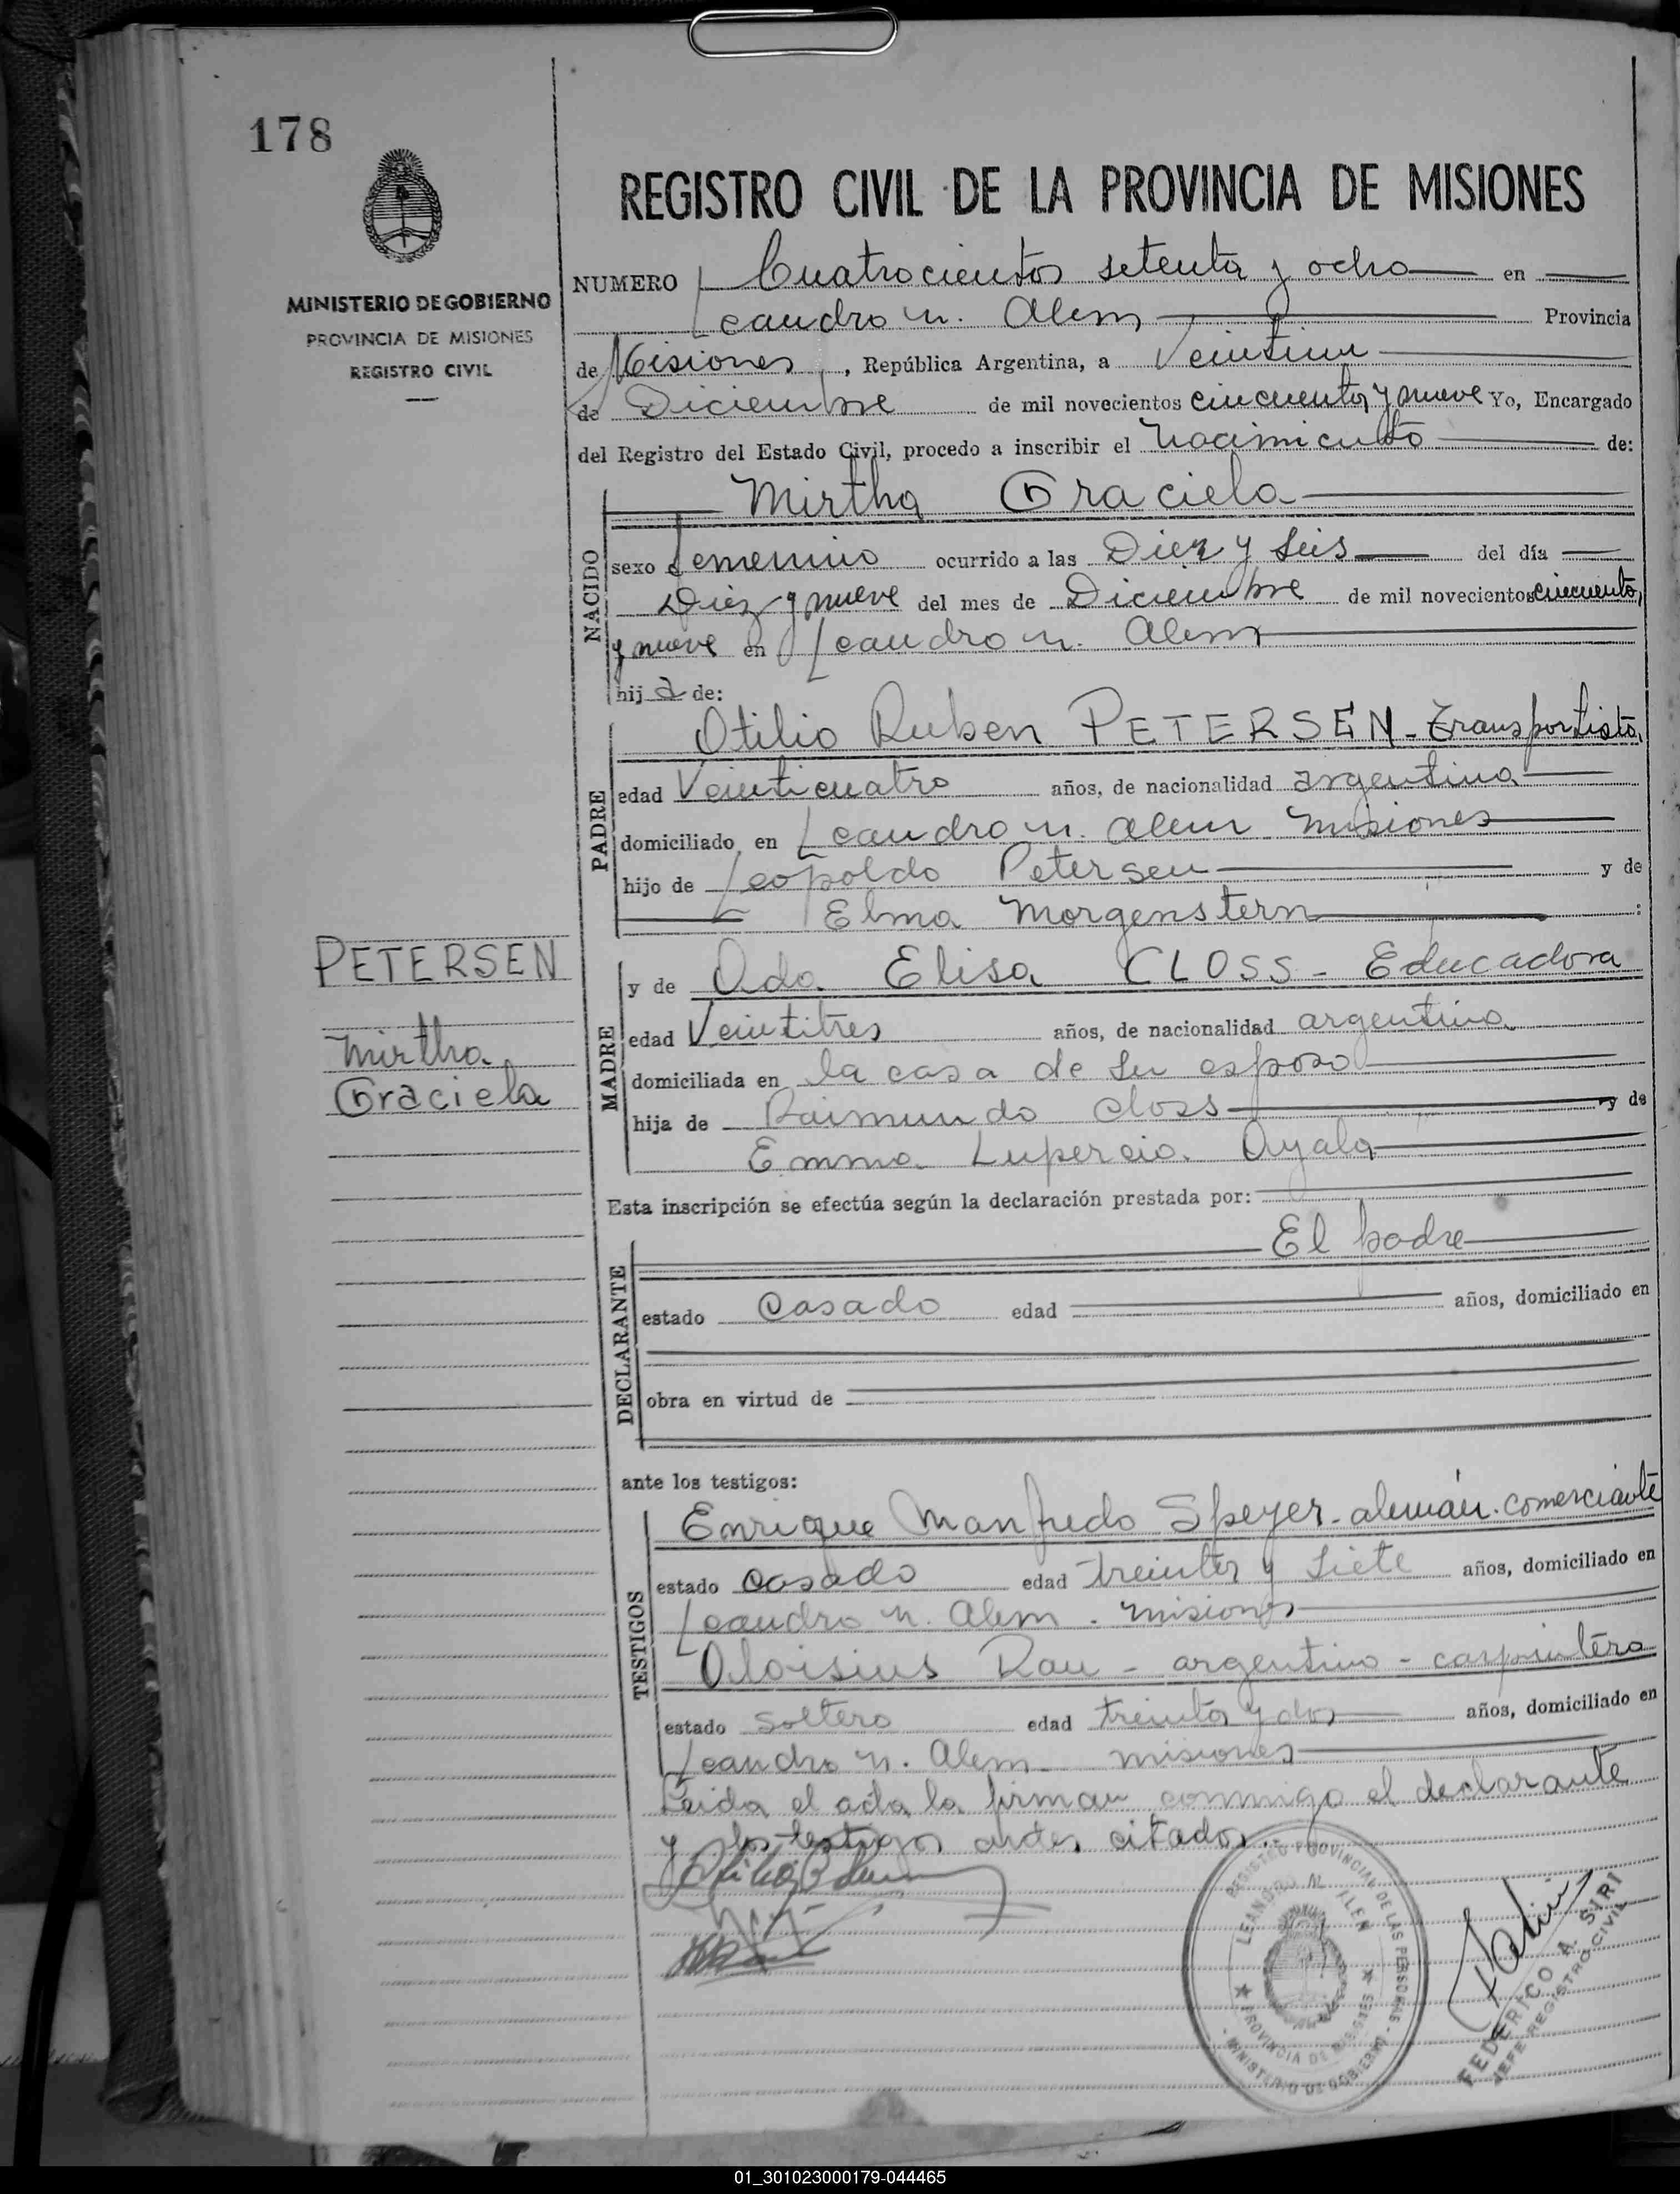 178
MINISTERIO DE GOBIERNO
PROVINCIA DE MISIONES
REGISTRO CIVIL
REGISTRO CIVIL DE LA PROVINCIA DE MISIONES
NUMERO Cuatrocientos setenta y ocho en
Leandro N. Alem Provincia
de Misiones, República Argentina, a Veintiun
de Diciembre de mil novecientos cincuenta y nueve Yo, Encargado
del Registro del Estado Civil, procedo a inscribir el Nacimiento de:
NACIDO
Mirtha Graciela
sexo femenino ocurrido a las Diez y seis del día
Diez y nueve del mes de Diciembre de mil novecientos cincuenta
y nueve en Leandro N. Alem
hija de:
PADRE
Otilio Ruben PETERSEN - Transportista
edad Veinticuatro años, de nacionalidad argentina
domiciliado en Leandro N. Alem Misiones
hijo de Leopoldo Petersen y de
Elma Morgenstern :
PETERSEN
Mirtha
Graciela
MADRE
y de Ada Elisa CLOSS - Educadora
edad Veintitres años, de nacionalidad argentina
domiciliada en la casa de su esposo
hija de Raimundo Closs y de
Emma Lupercia Ayala
Esta inscripción se efectúa según la declaración prestada por:
DECLARANTE
El padre
estado Casado edad años, domiciliado en
obra en virtud de
ante los testigos:
TESTIGOS
Enrique Manfredo Speyer - alemán - comerciante
estado casado edad treinta y siete años, domiciliado en
Leandro N. Alem - Misiones
Aloisius Rau - argentino - carpintero
estado soltero edad treinta y dos años, domiciliado en
Leandro N. Alem - misiones
Leida el acta la firman conmigo el declarante
y los testigos antes citados.
REGISTRO PROVINCIAL DE LAS PERSONAS
LEANDRO N. ALEM
PROVINCIA DE MISIONES
MINISTERIO DE GOBIERNO
FEDERICO A. SIRI
JEFE REGISTRO CIVIL
01_301023000179-044465